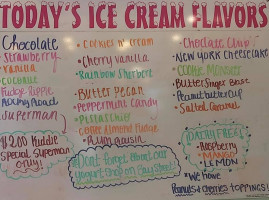 TODAY'S ICE CREAM FLAVORS
Chocolate
Strawberry
Vanilla
Coconut
Fudge Ripple
Rocky Road
Superman
$2.00 Kiddie
Special Superman
Only!
Cookies n' Cream
Cherry Vanilla
Rainbow Sherbert
Butter Pecan
Peppermint Candy
Pistachio
Coffee Almond Fudge
Rum Raisin
Don't forget about our
Yogurt Shop on Bay Street
Chocolate Chip
New York Cheesecake
Cookie Monster
Butterfinger Base
Peanut Butter Cup
Salted Caramel
DAIRY FREE
Raspberry
MANGO
LEMON
We have
Peanuts & cherries toppings!